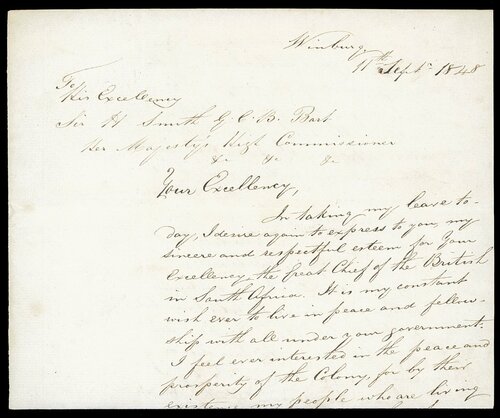 Winburg,
11th Sept 1848
To
His Excellency
Sir H Smith G.C.B. Bart
Her Majesty's High Commissioner
&c &c &c
Your Excellency,
In taking my leave to-
day, I desire again to express to you, my
sincere and respectful esteem for Your
Excellency, the great Chief of the British
in South Africa. It is my constant
wish ever to live in peace and fellow-
ship with all under your government.
I feel ever interested in the peace and
prosperity of the Colony, for by their
existence my people who are living